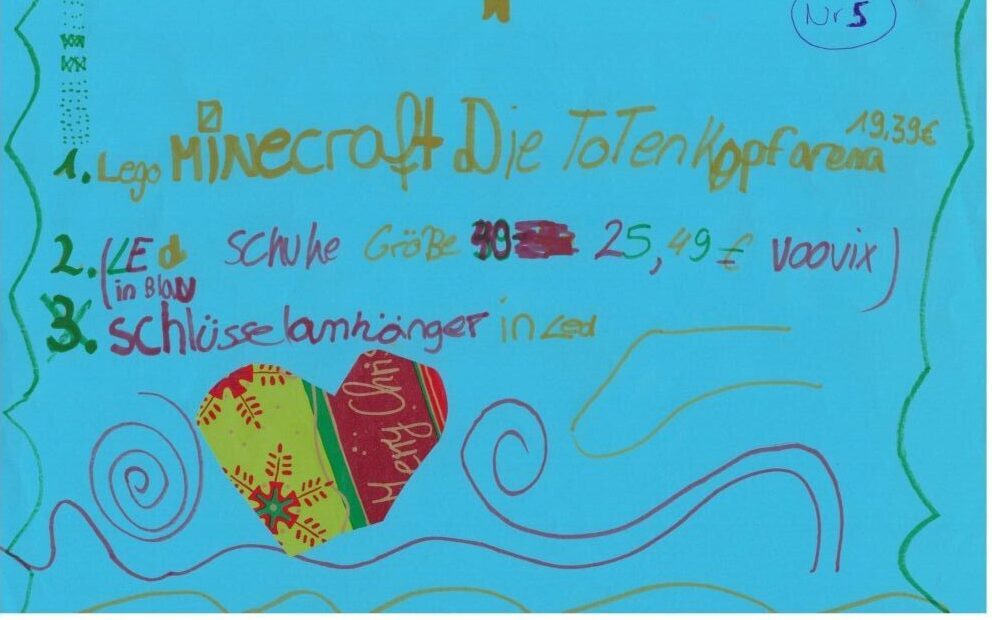 Nr 5
1. Lego Minecraft Die Totenkopfarena 19,39€
2. (LEd Schuhe Größe 25,49€ voovix)
in Blau
3. Schlüsselamhänger in Led
Merry Chris